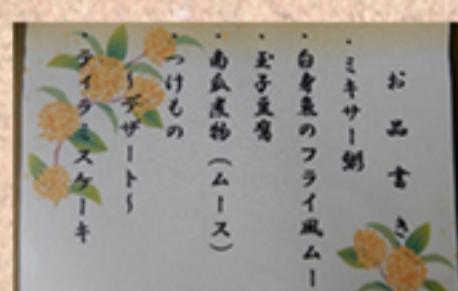 お品書き
・ミキサー粥
・白身魚のフライ風ムー
・玉子豆腐
・南瓜煮物（ムース）
・つけもの
～デザート～
・ティラミスケーキ